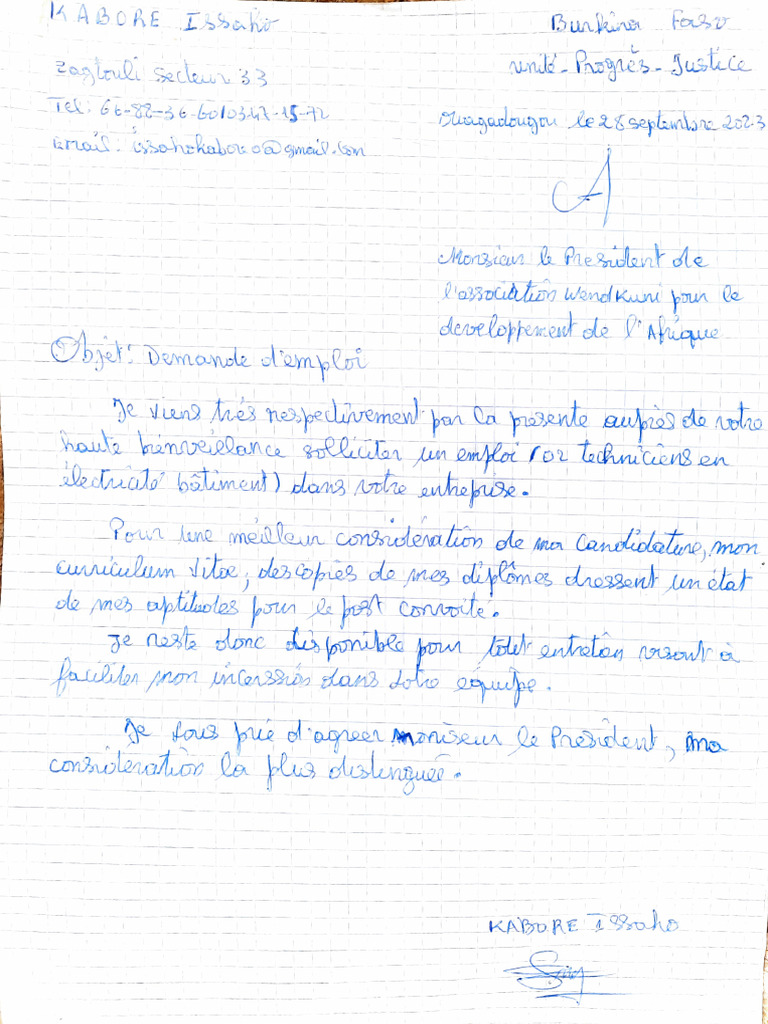 KABORE Issaho
Burkina Faso
Zagtouli secteur 33
unité - Progrès - Justice
Tel: 66-82-36-60/03-47-15-72
ouagadougou le 28 septembre 2023
Email: issahokabore@gmail.com
A
Monsieur le President de
l'association WendKuni pour le
developpement de l'Afrique
Objet: Demande d'emploi
Je viens très respectivement par la presente auprès de votre
haute bienveillance solliciter un emploi (02 techniciens en
électricité bâtiment) dans votre entreprise.
Pour une meilleur considération de ma candidature, mon
curriculum vitae, des copies de mes diplômes dressent un état
de mes aptitudes pour le post convoité.
Je reste donc disponible pour tout entretien visant à
faciliter mon incession dans votre équipe.
Je vous prie d'agreer moniseur le President, ma
considération la plus distinguée.
KABORE Issaho